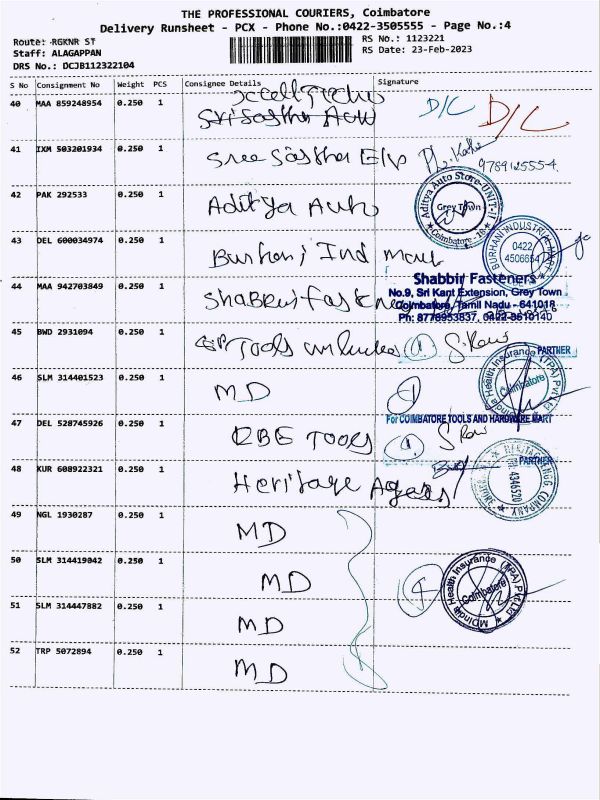 THE PROFESSIONAL COURIERS, Coimbatore
Delivery Runsheet - PCX - Phone No.:0422-3505555 - Page No.:4
Route: RGKNR ST
Staff: ALAGAPPAN
DRS No.: DCJB112322104
RS No.: 1123221
RS Date: 23-Feb-2023
S No Consignment No Weight PCS Consignee Details Signature
40 MAA 859248954 0.250 1 D/C D/C
41 IXM 503201934 0.250 1 Sree Sastha E/p 9789125554
42 PAK 292533 0.250 1 Aditya Auto
Aditya Auto Store-UNIT-II
Grey Town
Coimbatore - 18
43 DEL 600034974 0.250 1 Burhani Ind Mart
BURHANI INDUSTRIAL MART
0422
4506654
44 MAA 942703849 0.250 1
Shabbir Fasteners
No.9, Sri Kant Extension, Grey Town
Coimbatore, Tamil Nadu - 641018
Ph: 8778953837, 0422-3610140
45 BWD 2931094 0.250 1 Tools 1 S.Ravi
PARTNER
46 SLM 314401523 0.250 1 MD 1
MDIndia Health Insurance (TPA) Pvt Ltd
Coimbatore
For COIMBATORE TOOLS AND HARDWARE MART
47 DEL 528745926 0.250 1 Tools 1 S Ravi
PARTNER
48 KUR 608922321 0.250 1 Heritage
4346520
49 NGL 1930287 0.250 1 MD
50 SLM 314419042 0.250 1 MD 4
MDIndia Health Insurance (TPA) Pvt Ltd
Coimbatore
51 SLM 314447882 0.250 1 MD
52 TRP 5072894 0.250 1 MD